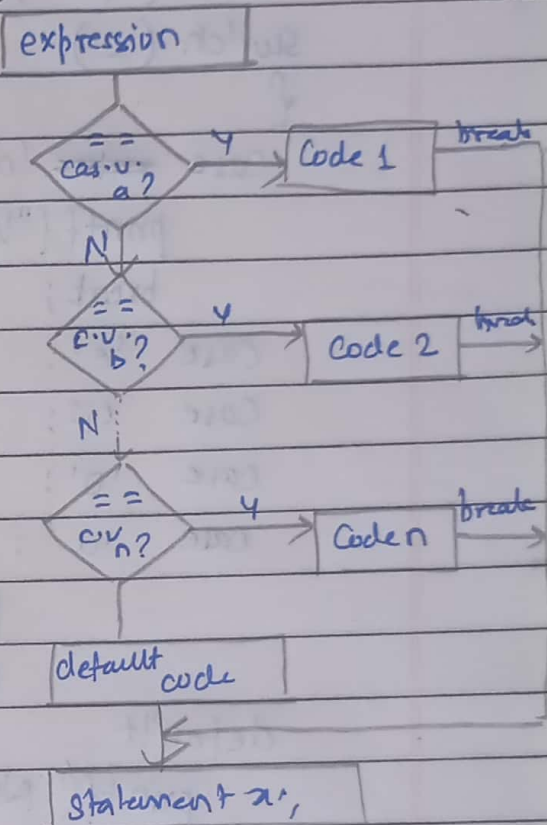 expression
==
cas.v.
a?
Y
Code 1
break
N
==
c.v.
b?
Y
Code 2
break
N
==
cv
n?
Y
Code n
break
default
code
statement x;